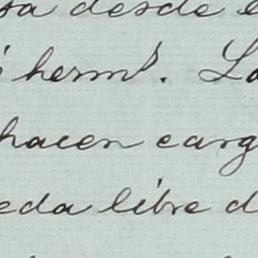 sa desde e
herm.ᵒ La
hacen carg
eda libre d